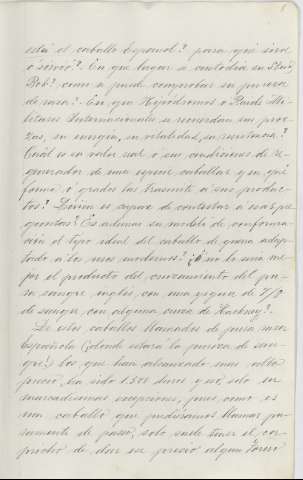 está el caballo Español? para qué sirve
ó sirvió? En que lugar se custodia su Stud
Bok? como se puede comprobar su pureza
de raza? En que Hipódromos ó Raids Mi-
litares Internacionales se recuerdan sus proe-
zas, su energia, su velocidad, su resistencia?
Cuál es su valor real ó sus condiciones de re-
generador de una especie caballar y en qué
forma ó grados las trasmite á sus produc-
tos? Quien es capaz de contestar á esas pre-
guntas? Es acaso su modelo de conforma-
ción el tipo ideal del caballo de guerra adap-
tado á los usos modernos? ¿ó no lo sería me-
jor el producto del cruzamiento del pu-
ra sangre inglés con una yegua de 7/8
de sangre con alguna cruza de Hackney?
De estos caballos llamados de pura raza
Española (¿donde estará la pureza de san-
gre?) los que han alcanzado mas alto
precio, ha sido 1.500 duros y eso, solo en
marcadísimas excepciones, pues como es
un caballo que pudiéramos llamar pu-
ramente de paseo, solo suele tener el ca-
pricho de dar ese precio algun Torero